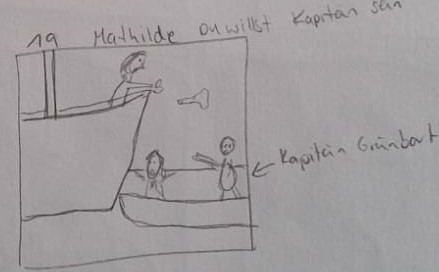 19 Mathilde du willst Kapitän sein
Kapitän Grünbart